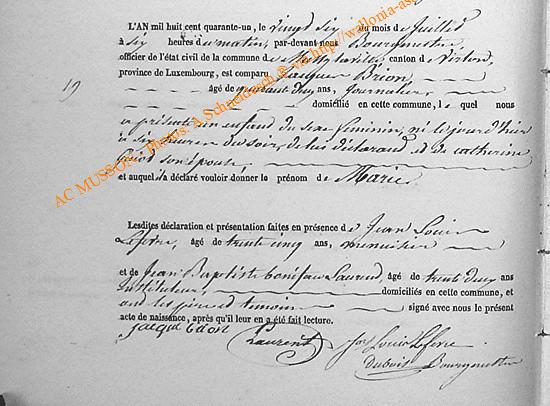 L'AN mil huit cent quarante-un, le vingt six du mois de Juillet
à six heures du matin, par-devant nous Bourgmestre
officier de l'état civil de la commune de canton de Virton,
province de Luxembourg, est comparu Jacques Brion,
âgé de ans, journalier,
19
domicilié en cette commune, lequel nous
a présenté un enfant du sexe feminin, né le jour d'hier
à six heures du soir, de lui déclarant et de catherine
son épouse
et auquel il a déclaré vouloir donner le prénom de Marie
Lesdites déclaration et présentation faites en présence de Jean Louis
Lefevre, âgé de trente cinq ans, menuisier
et de Jean Baptiste boniface Laurent âgé de trente deux ans
instituteur, domiciliés en cette commune, et
ont les père et temoins signé avec nous le présent
acte de naissance, après qu'il leur en a été fait lecture.
Laurent Jn Louis Lefevre
dubois Bourgmestre
AC MUSSON - Photos: A. Schneidesch @ via http://wallonia-as